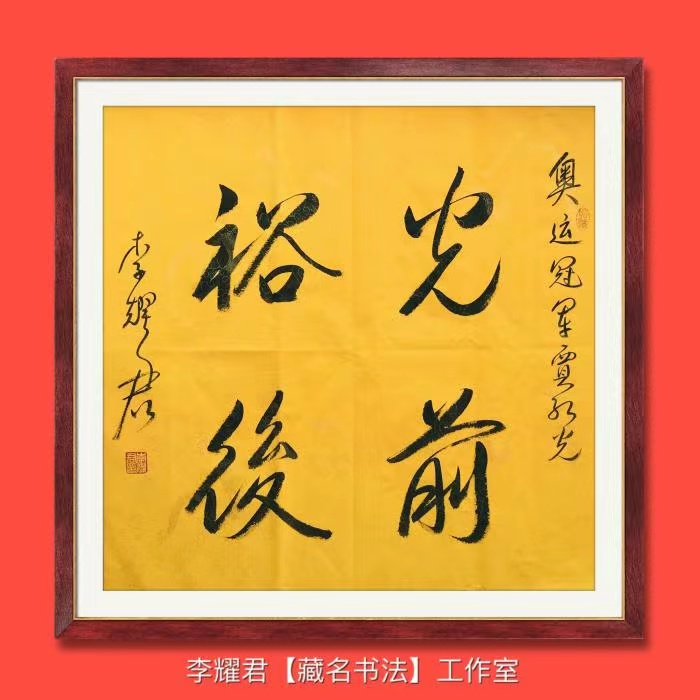 奥运冠军贾红光
光前
裕後
李耀君
李耀君【藏名书法】工作室